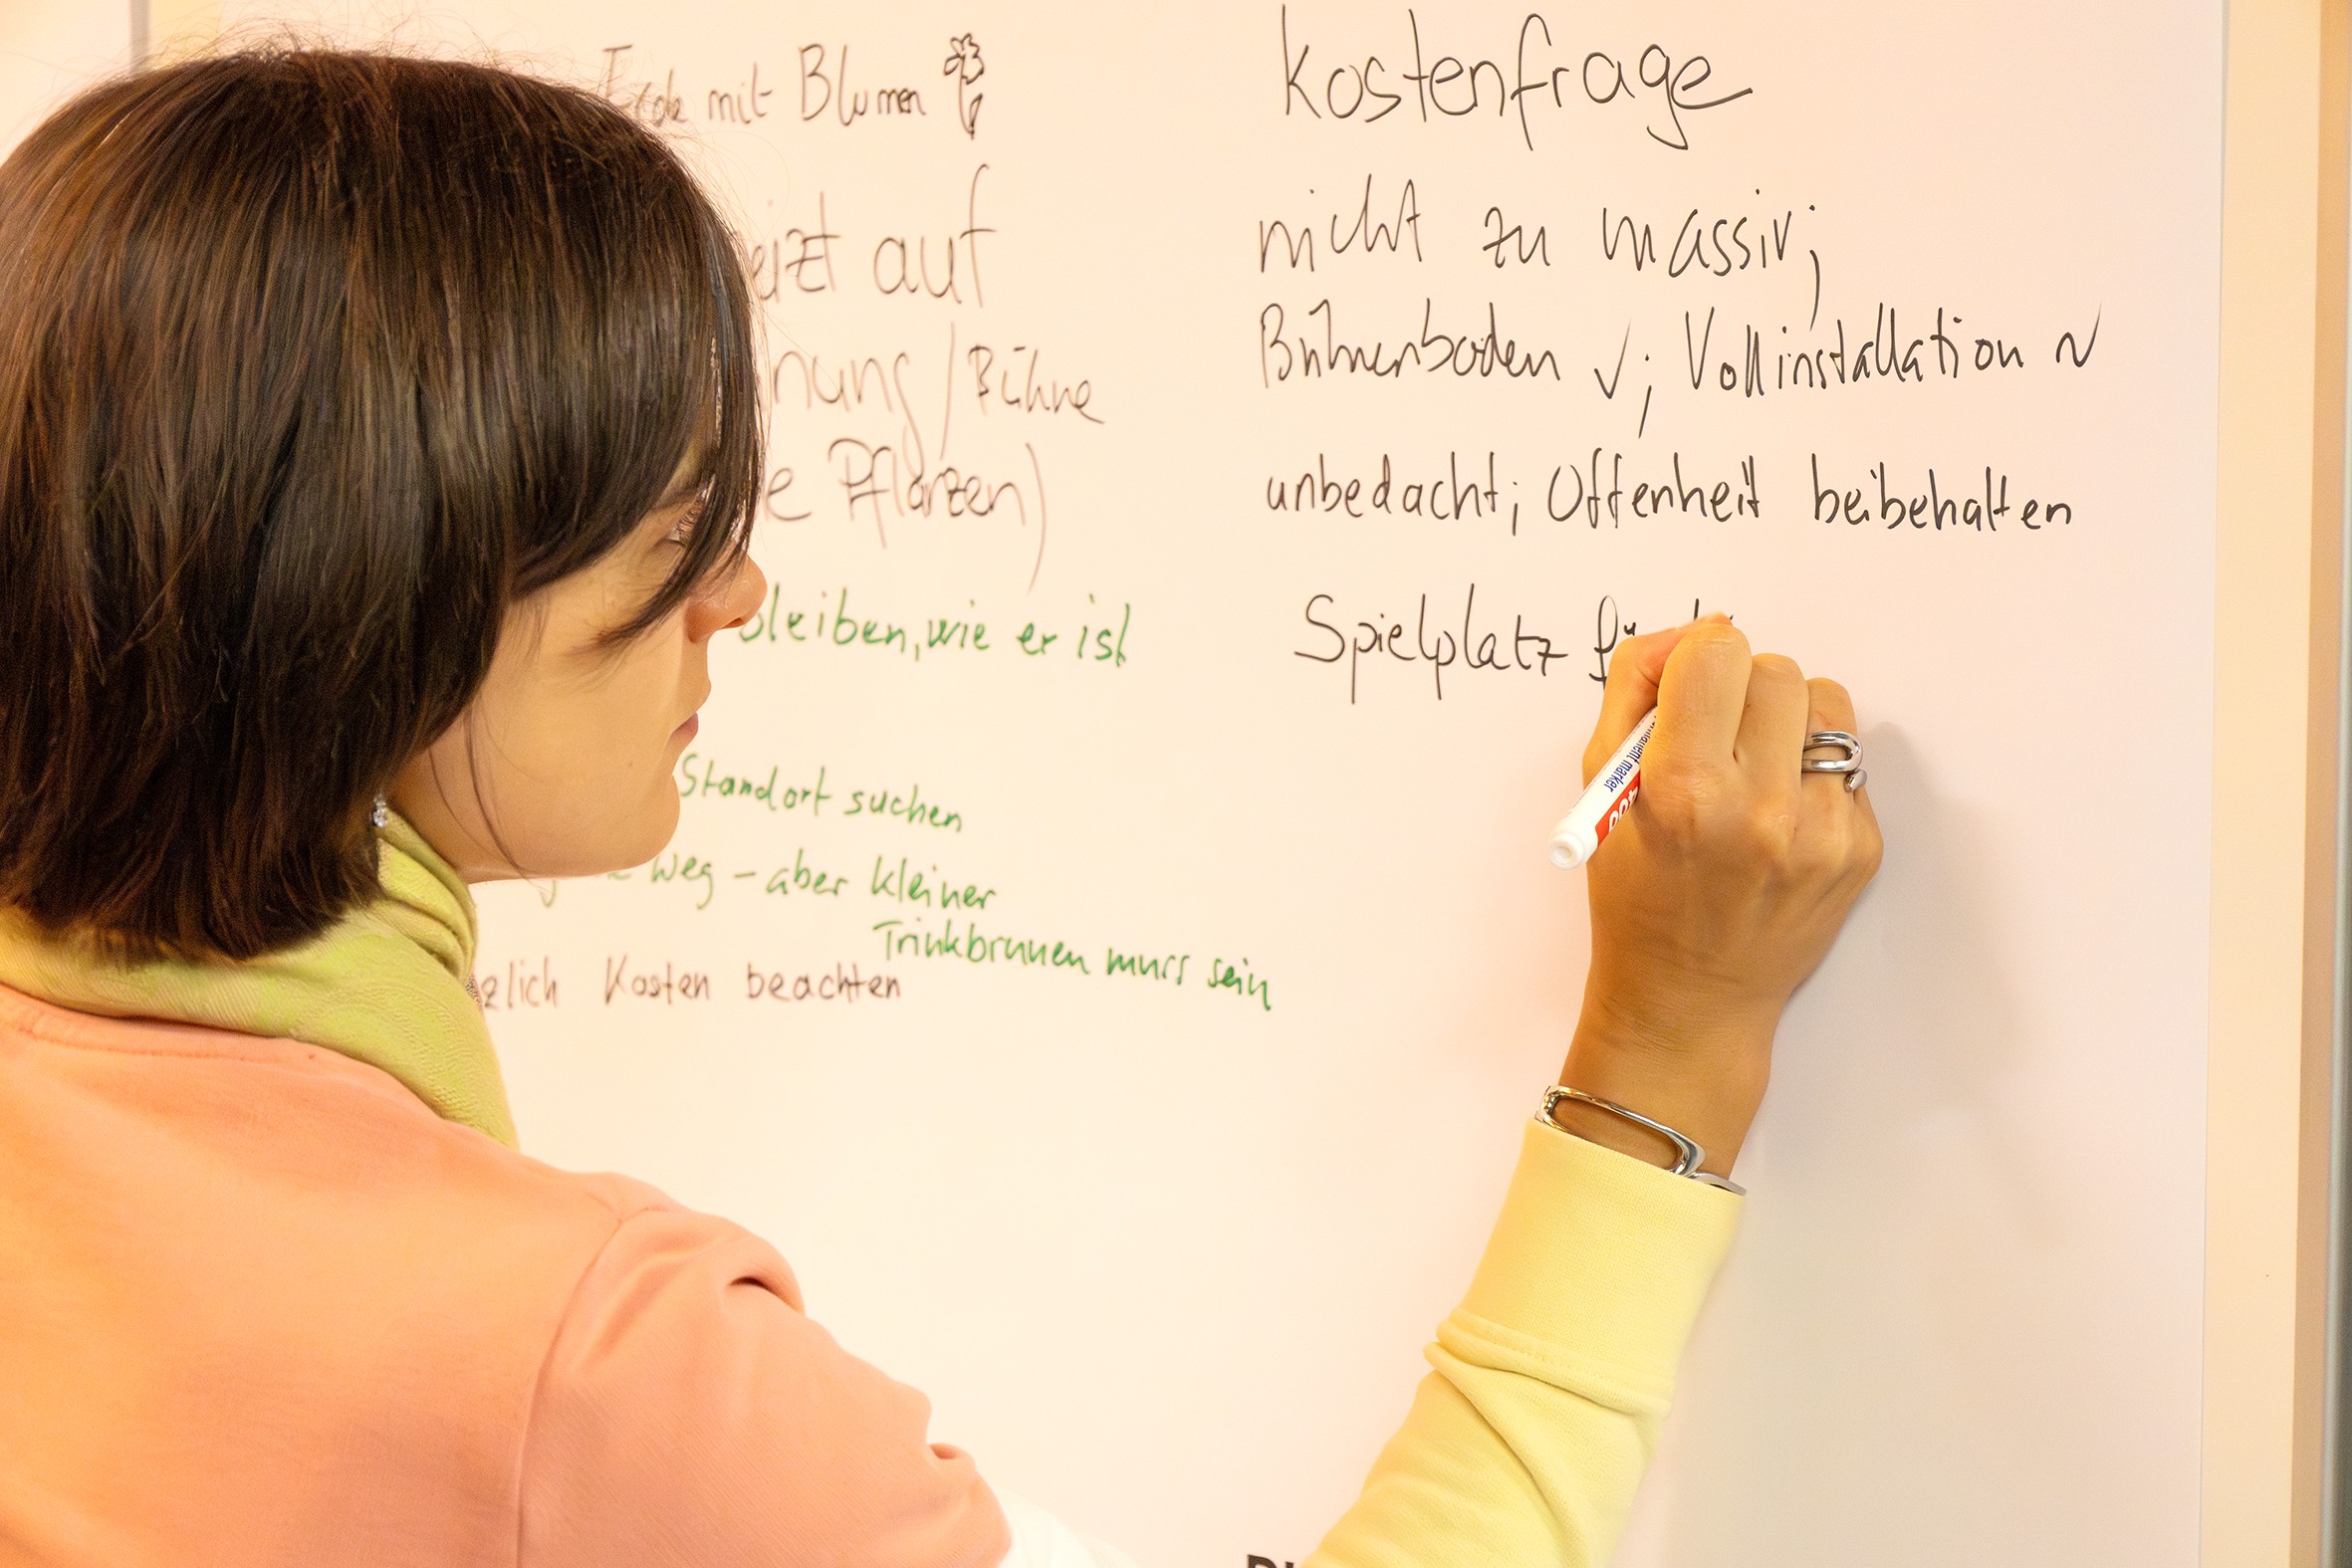 Erde mit Blumen
eizt auf
nung / Bühne
e Pflanzen)
bleiben, wie er ist
Standort suchen
weg – aber kleiner
Trinkbrunnen muss sein
zlich Kosten beachten
Kostenfrage
nicht zu massiv;
Bühnenboden ✓; Vollinstallation ~
unbedacht; Offenheit beibehalten
Spielplatz für
permanent marker
400